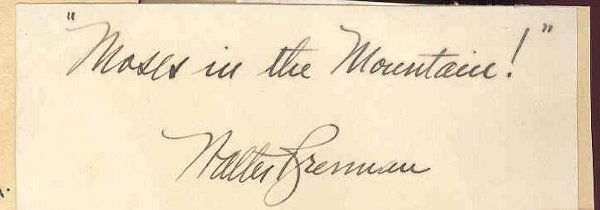 "Moses in the Mountain!"
Walter Brennan